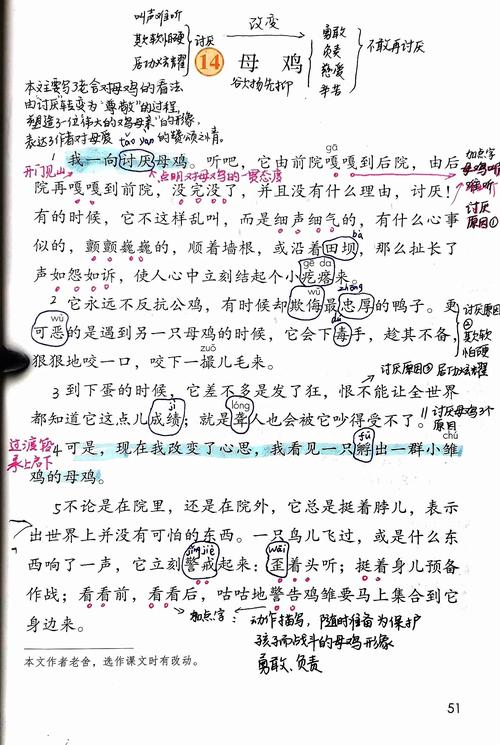 叫声难听
欺软怕硬
居功炫耀
讨厌
改变
14 母鸡
欲扬先抑
勇敢
负责
慈爱
辛苦
不敢再讨厌
本文主要写了老舍对母鸡的看法
由"讨厌"转变为"尊敬"的过程,
塑造了一位伟大的"鸡母亲"的形象,
表达了作者对母爱的赞颂之情。
tǎo yàn
gā
1 我一向讨厌母鸡。听吧,它由前院嘎嘎到后院,由后
开门见山
点明对母鸡的态度
加点字
母鸡叫声
难听
院再嘎嘎到前院,没完没了,并且没有什么理由,讨厌!
讨厌
原因①
有的时候,它不这样乱叫,而是细声细气的,有什么心事
bà
似的,颤颤巍巍的,顺着墙根,或沿着田坝,那么扯长了
gē da
声如怨如诉,使人心中立刻结起个小疙瘩来。
zhōng
2 它永远不反抗公鸡,有时候却欺侮最忠厚的鸭子。更
wù
dú
可恶的是遇到另一只母鸡的时候,它会下毒手,趁其不备,
讨厌原因
②
欺软
怕硬
zuǒ
狠狠地咬一口,咬下一撮儿毛来。
讨厌原因③ 居功炫耀
3 到下蛋的时候,它差不多是发了狂,恨不能让全世界
jì
lóng
都知道它这点儿成绩;就是聋人也会被它吵得受不了。
讨厌母鸡3个
原因
过渡段
承上启下
fū
chú
4 可是,现在我改变了心思,我看见一只孵出一群小雏
鸡的母鸡。
5 不论是在院里,还是在院外,它总是挺着脖儿,表示
出世界上并没有可怕的东西。一只鸟儿飞过,或是什么东
jǐng jiè
wāi
西响了一声,它立刻警戒起来:歪着头听;挺着身儿预备
作战;看看前,看看后,咕咕地警告鸡雏要马上集合到它
身边来。
加点字:动作描写,随时准备为保护
孩子而战斗的母鸡形象
勇敢、负责
本文作者老舍,选作课文时有改动。
51